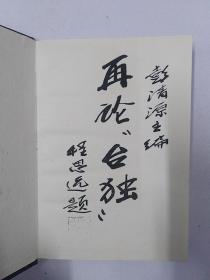 彭清源主编
再论“台独”
程思远题